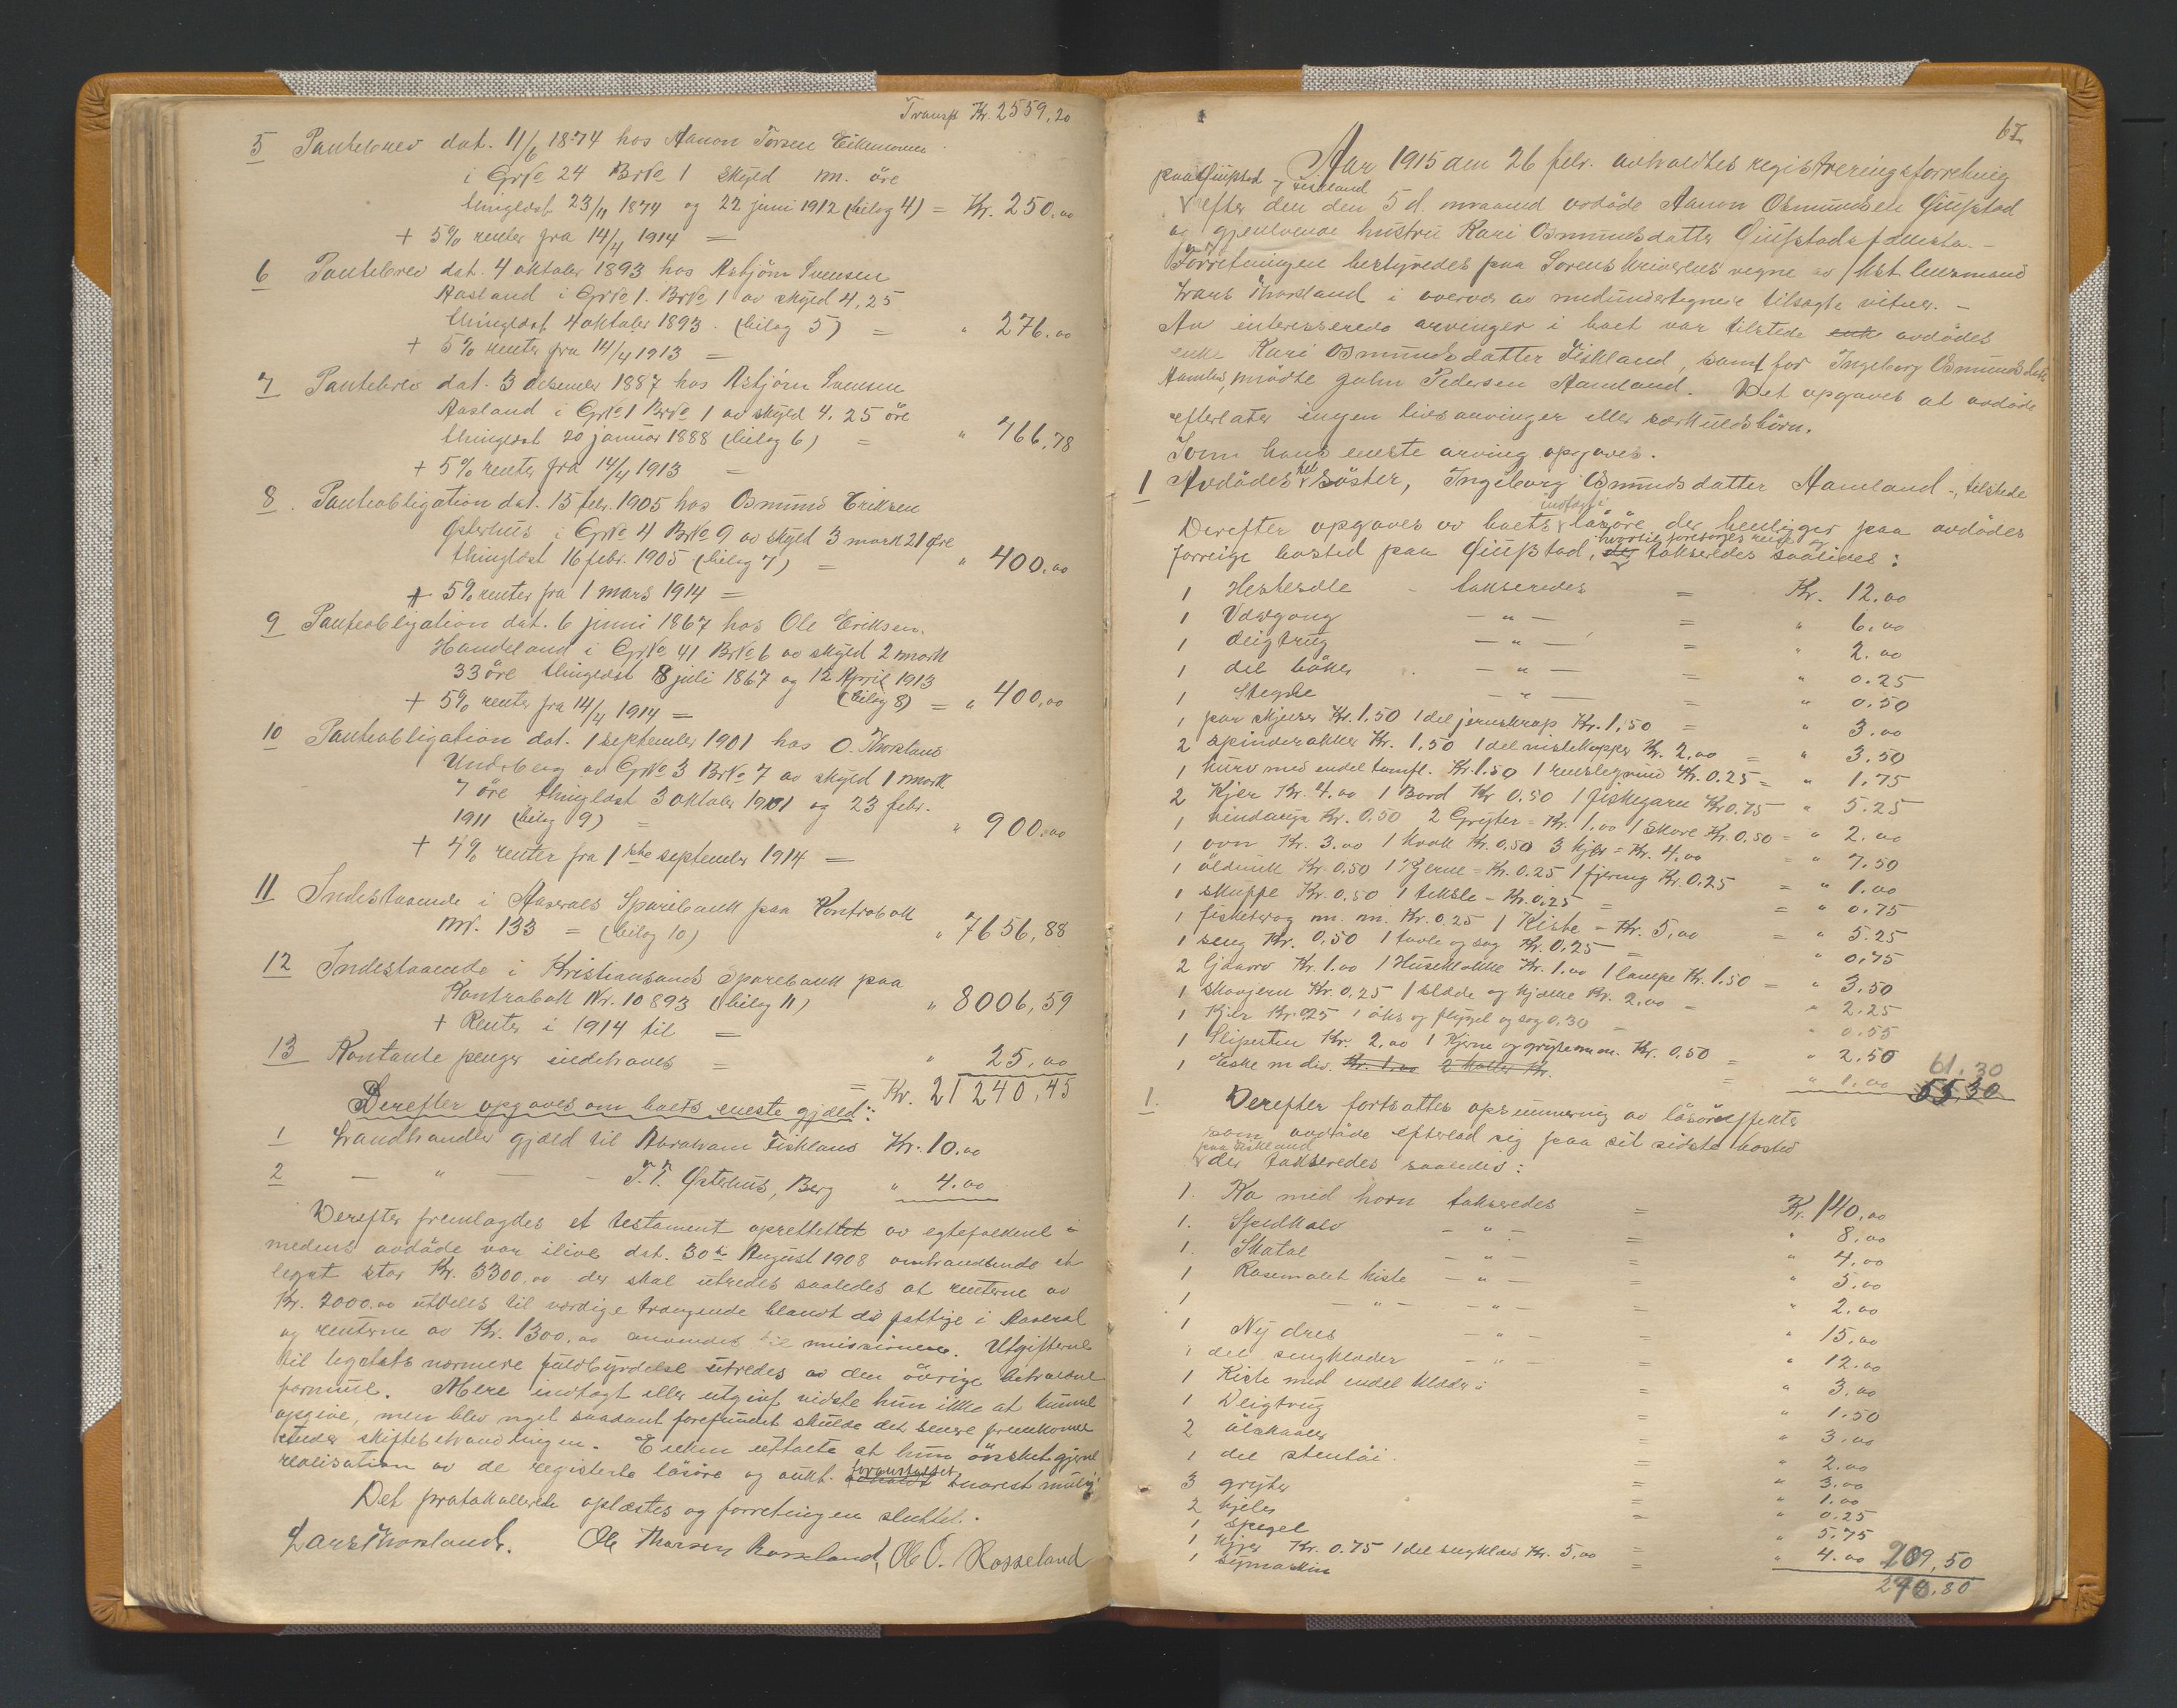 Transp Kr. 2559,20
5 Pantebrev dat. 11/6 1874 hos Aanon Torsen Eikemoen
i GrNo 24 BrNo 1 skyld m. öre
thinglæst 23/11 1874 og 22 juni 1912 (bilag 4) = Kr. 250,00
+ 5% renter fra 14/4 1914 =
6 Pantebrev dat. 4 oktober 1893 hos Asbjörn Svensen
Aasland i GrNo 1. BrNo 1 av skyld 4,25
thinglæst 4 oktober 1893. (bilag 5) = " 276.00
+ 5% renter fra 14/4 1913 =
7 Pantebrev dat. 3 desember 1887 hos Asbjörn Svensen
Aasland i GrNo 1 BrNo 1 av skyld 4.25 öre
thinglæst 20 januar 1888 (bilag 6) = " 766,78
+ 5% renter fra 14/4 1913 =
8. Panteobligation dat. 15 febr. 1905 hos Osmund Eriksen
Østerhus i GrNo 4 BrNo 9 av skyld 3 mark 21 Øre
thinglæst 16 febr. 1905 (bilag 7) = " 400.00
+ 5% renter fra 1 mars 1914 =
9 Panteobligation dat. 6 juni 1867 hos Ole Eriksen.
Handeland i GrNo 41 BrNo 6 av skyld 2 mark
33 öre thinglæst 8 juli 1867 og 12 April 1913
+ 5% renter fra 14/4 1914 = (bilag 8) = " 400,00
10 Panteobligation dat. 1 september 1901 hos O. Thorsland
Undeberg av GrNo 3 BrNo 7 av skyld 1 mark
7 öre thinglæst 3 oktober 1901 og 23 febr.
1911 (bilag 9) = " 900.00
+ 4% renter fra 1ste september 1914 =
11 Indestaaende i Aaserals Sparebank paa Kontrabok
Nr. 133 = (bilag 10) " 7656,88
12 Indestaaende i Kristiansands Sparebank paa
Kontrabok Nr. 10893 (bilag 11) " 8006,59
+ Renter i 1914 til =
13 Kontante penger indehaves = " 25,00
= Kr. 21240,45
Derefter opgaves om boets eneste gjæld:
1 Landhandler gjæld til Abraham Fiskland Kr. 10.00
2 — " — T. T. Østerhus, Berg " 4.00
Derefter fremlagdes et testament oprettet av egtefolkene
medens avdöde var ilive dat. 30te August 1908 omhandlende et
legat stor Kr. 3300,00 der skal utredes saaledes at renterne av
Kr. 2000.00 utdeles til værdige trængende blandt de fattige i Aaseral
og renterne av Kr. 1300.00 anvendes til missionen. Utgifterne
til legatets nærmere fuldbyrdelse utredes av den övrige
formue. Mere indtægt eller utgift vidste hun ikke at kunne
opgive, men blev noget saadant forefundet skulde det senere fremkomme
under skiftebehandlingen. Enken uttalte at hun önsket gjerne
realisation av de registerte lösöre og aukt. foranstaltet snarest mulig
Det protokollerte oplæstes og forretningen sluttet.
Lars Thorsland. Ole Thorsen Rosseland, Ole O. Rosseland
62
Aar 1915 den 26 febr. avholdtes registreringsforretning
paa Ljupstad og Fiskland
efter den den 5 d. maaned avdöde Aanon Osmundsen
og gjenlevende hustru Kari Osmundsdatter
Forretningen bestyredes paa Sorenskriverens vegne av kst. lensmand
Lars Thorsland i overvær av medundertegnede tilsagte vitner. —
Av interesserede arvinger i boet var tilstede enk avdödes
enke Kari Osmundsdatter Fiskland, samt for Ingeborg Osmundsdatter
Aamland, mödte John Pedersen Aamland. Det opgaves at avdöde
efterlater ingen livsarvinger eller særkuldsbörn.
Som hans eneste arving opgaves.
1 Avdödes hel söster, Ingeborg Osmundsdatter Aamland -, tilstede
indtægt
Derefter opgaves av boets lösöre der henligger paa avdödes
forrige bosted paa der takseredes saaledes:
1 Hestesæle takseredes = Kr. 12.00
1 Vævgang — " — = " 6,00
1 deigtrug — " — = " 2.00
1 del böker — " — = " 0.25
1 — " — = " 0.50
1 par skjæker Kr. 1,50 1 del jernskrap Kr. 1,50 = " 3.00
2 spinderokker Kr. 1,50 1 del Kr. 2,00 = " 3.50
1 kurv med endel Kr. 1.50 1 Kr. 0.25 = " 1.75
2 Kjer Kr. 4.00 1 Bord Kr. 0.50 1 fiskegarn Kr 0.75 " 5.25
1 Kr. 0.50 2 Gryter = Kr. 1,00 1 Kr. 0.50 = " 2.00
1 ovn Kr. 3.00 1 Kr. 0.50 3 kjer = Kr. 4,00 = " 7.50
1 öldunk Kr. 0.50 1 Kjerne = Kr. 0.25 1 fjering Kr. 0.25 = " 1.00
1 skjeppe Kr. 0.50 1 teksle - Kr. 0.25 = " 0.75
1 m. m. Kr. 0.25 1 Kiste - Kr. 5,00 = " 5.25
1 seng Kr. 0,50 1 tavle og sag Kr. 0.25 = " 0.75
2 ljaaorv Kr. 1.00 1 Huseklokke Kr. 1.00 1 lampe Kr. 1.50 = " 3.50
1 skavjern Kr. 0.25 1 slæde og kjælke Kr. 2.00 = " 2.25
1 Kr. 0.25 1 öks og og sag 0.30 = " 0.55
1 Slipesten Kr. 2,00 1 Kjerne og m m. Kr. 0,50 = " 2.50
1 Eske m div. Kr. 1.00 = " 1.00 55,30 61,30
1. Derefter fortsattes opsummering av lösöreeffekter
som avdöde efterlod sig paa sit sidste bosted
paa Fiskland
der takseredes saaledes:
1. Ko med horn takseredes = Kr. 140,00
1. Spedkalv — " — = " 8,00
1. Skatol — " — = " 4,00
1 Rosemalet kiste — " — = " 5.00
1 — " — — " — = " 2.00
1 Ny dres — " — = " 15,00
1 del sengklæder — " — = " 12.00
1 Kiste med endel klæder i = " 3,00
1 Deigtrug = " 1.50
2 ölskaaler = " 3.00
1 del stentöi. = " 2.00
3 gryter = " 3.00
2 kjeler = " 1.00
1 spegel = " 0.25
1 Kjer Kr. 0.75 1 del sengklær Kr. 5,00 = " 5.75
1 Symaskin = " 4.00 209,50
270.80